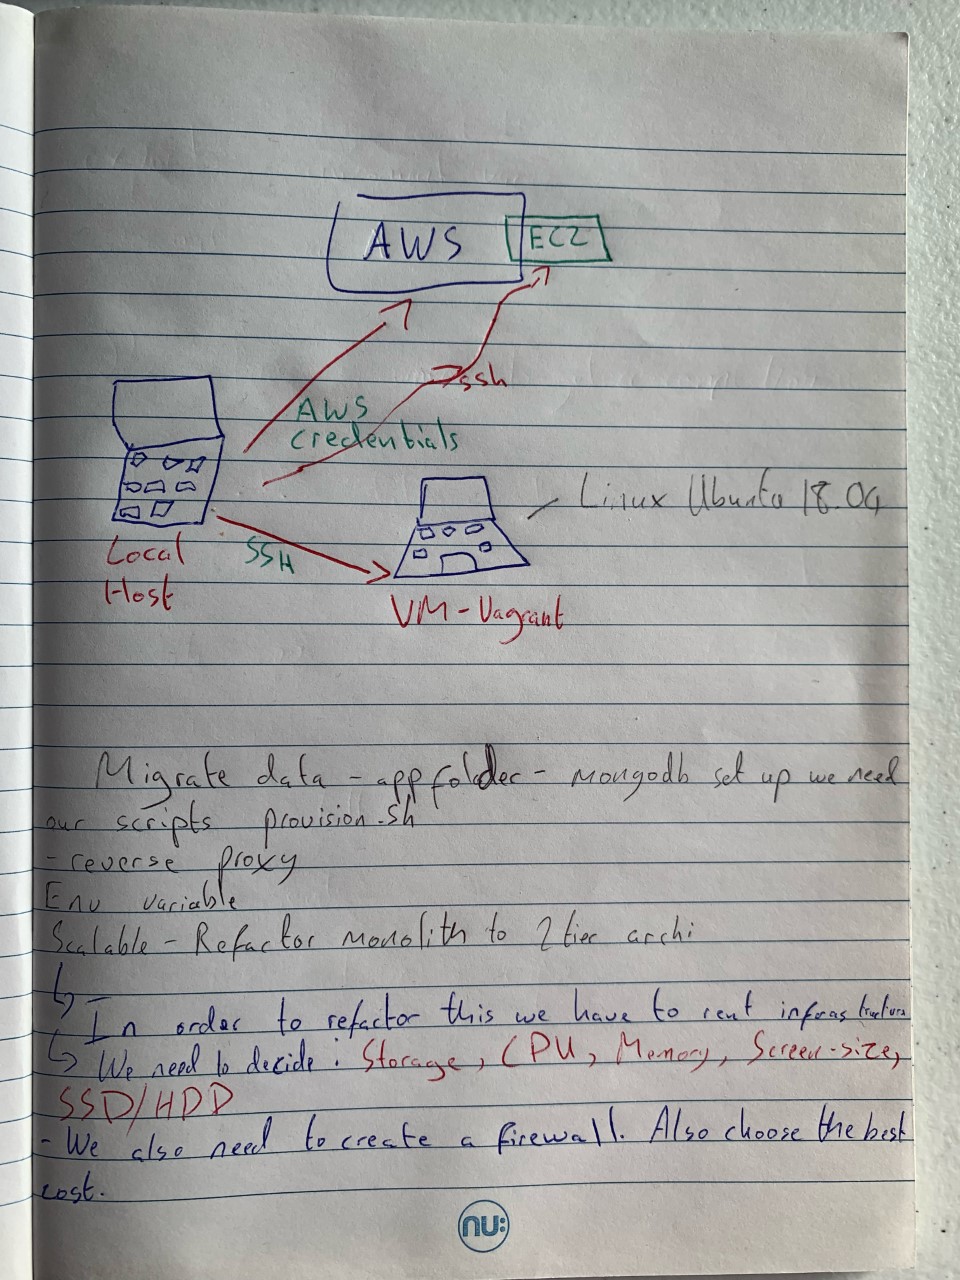 AWS
EC2
ssh
AWS
credentials
Linux Ubuntu 18.04
SSH
Local
Host
VM-Vagrant
Migrate data - app folder - mongodb set up we need
our scripts provision.sh
- reverse proxy
Env variable
Scalable - Refactor monolith to 2 tier archi
In order to refactor this we have to rent infrastructure
We need to decide : Storage, CPU, Memory, Screen-size,
SSD/HDD
- We also need to create a firewall. Also choose the best
cost.
nu: